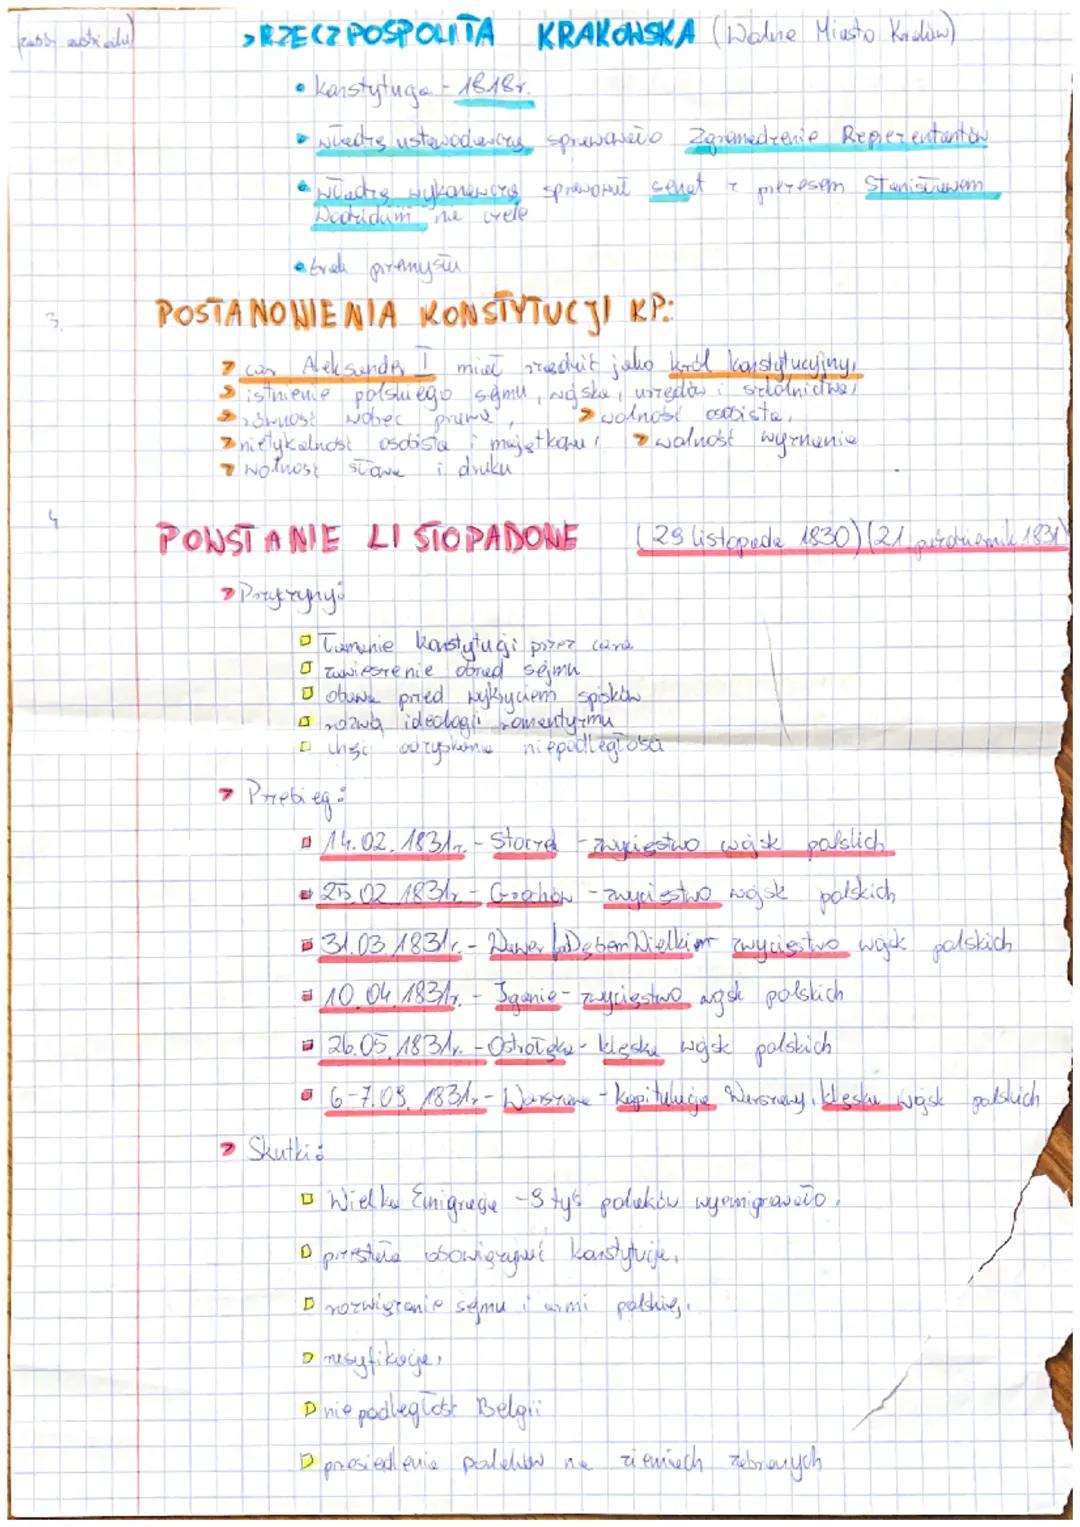 (zabór austriacki)
→RZECZPOSPOLITA KRAKOWSKA (Wolne Miasto Kraków)
• Konstytucja - 1818r.
• władzę ustawodawczą sprawowało Zgromadzenie Reprezentantów
• władzę wykonawczą sprawował senat z prezesem Stanisławem
Wodzickim na czele
• brak przemysłu
3. POSTANOWIENIA KONSTYTUCJI KP:
→ car Aleksander I miał rządzić jako król konstytucyjny,
→ istnienie polskiego sejmu, wojska, urzędów i szkolnictwa,
→ równość wobec prawa, → wolność osobista,
→ nietykalność osobista i majątkowa, → wolność wyznania
→ wolność słowa i druku
4 POWSTANIE LISTOPADOWE (29 listopada 1830) (21 październik 1831)
→ Przyczyny:
Łamanie konstytucji przez cara
zawieszenie obrad sejmu
obawa przed wykryciem spisków
rozwój ideologii romantyzmu
chęć odzyskania niepodległości
→ Przebieg:
14.02.1831r. - Stoczek - zwycięstwo wojsk polskich
25.02 1831r - Grochów - zwycięstwo wojsk polskich
31.03.1831r. - Wawer i Dębem Wielkim zwycięstwo wojsk polskich
10.04.1831r. - Iganie - zwycięstwo wojsk polskich
26.05.1831r. - Ostrołęka - klęska wojsk polskich
6-7.09.1831r - Warszawa - Kapitulacja Warszawy, klęska wojsk polskich
→ Skutki:
Wielka Emigracja - 9 tyś polaków wyemigrowało,
przestała obowiązywać konstytucja,
rozwiązanie sejmu i armi polskiej,
rusyfikacja,
niepodległość Belgii
przesiedlenia polaków na ziemiach zabranych